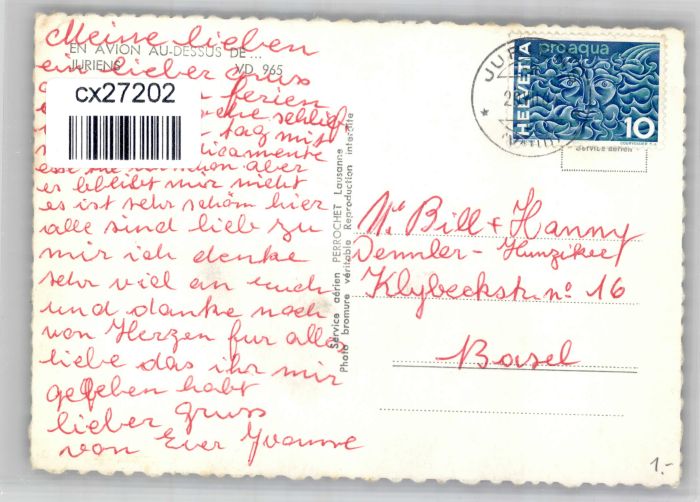 Meine lieben
EN AVION AU-DESSUS DE...
JURIENS VD 965
ein lieber Gruss
ferien
cx27202
schlief
tag mit
aber
es bleibt mir nicht
es ist sehr schön hier
alle sind lieb zu
mir ich denke
sehr viel an euch
und danke noch
von Herzen für alles
liebe das ihr mir
gegeben habt
lieber gruss
von Euer Yvonne
Service aérien PERROCHET Lausanne
Photo bromure véritable Reproduction interdite
JUR
HELVETIA
pro aqua
10
COURVOISIER S.A.
Service aérien
Bill + Hanny
Demmler - Hunziker
Klybeckstr no 16
Basel
1.-